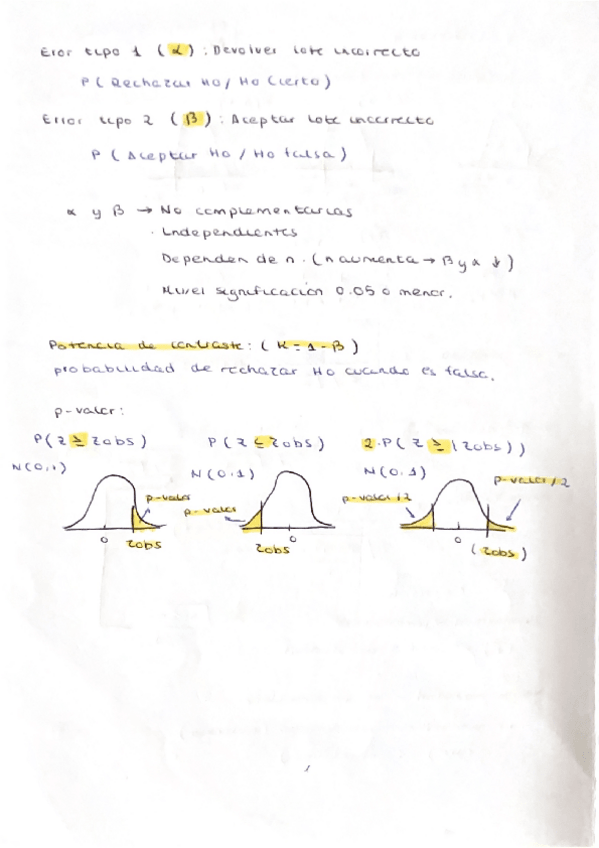 Error tipo 1 (α) : Devolver lote incorrecto
P ( Rechazar Ho / Ho Cierto )
Error tipo 2 (β) : Aceptar lote incorrecto
P ( Aceptar Ho / Ho falsa )
α y β → No complementarias
· Independientes
Dependen de n . ( n aumenta → β y α ↓ )
Nivel significación 0.05 o menor.
Potencia de contraste: ( K = 1 - β )
probabilidad de rechazar Ho cuando es falsa.
p-valor:
P ( z ≥ zobs ) P ( z ≤ zobs ) 2 · P ( z ≥ | zobs ) )
N(0,1) N(0,1) N(0,1)
p-valor p-valor p-valor/2 p-valor/2
0 zobs zobs 0 0 ( zobs )